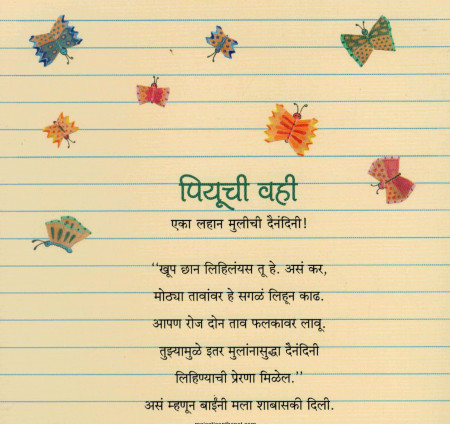 पियूची वही
एका लहान मुलीची दैनंदिनी!
“खूप छान लिहिलंयस तू हे. असं कर,
मोठ्या तावांवर हे सगळं लिहून काढ.
आपण रोज दोन ताव फलकावर लावू.
तुझ्यामुळे इतर मुलांनासुद्धा दैनंदिनी
लिहिण्याची प्रेरणा मिळेल.”
असं म्हणून बाईंनी मला शाबासकी दिली.